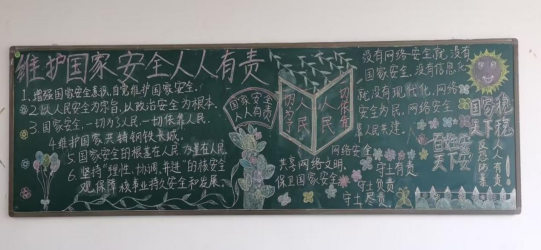 维护国家安全人人有责
1.增强国家安全意识,自觉维护国家安全.
2.以人民安全为宗旨,以政治安全为根本.
3.国家安全,一切为了人民,一切依靠人民.
4.维护国家共铸钢铁长城
5.国家安全的根基在人民力量在人民
6.坚持"理性、协调、并进"的核安全
观,保障核事业持久安全和发展.
国家安全
人人有责
一切为了人民
一切依靠人民
共享网络文明,
保卫国家安全
没有网络安全就没有
国家安全,没有信息化
就没有现代化,网络
安全为民,网络安全
靠人民共建,人
守土有责
守土负责
守土尽责
国家安全
天下安
国家稳
天下稳
人人有责